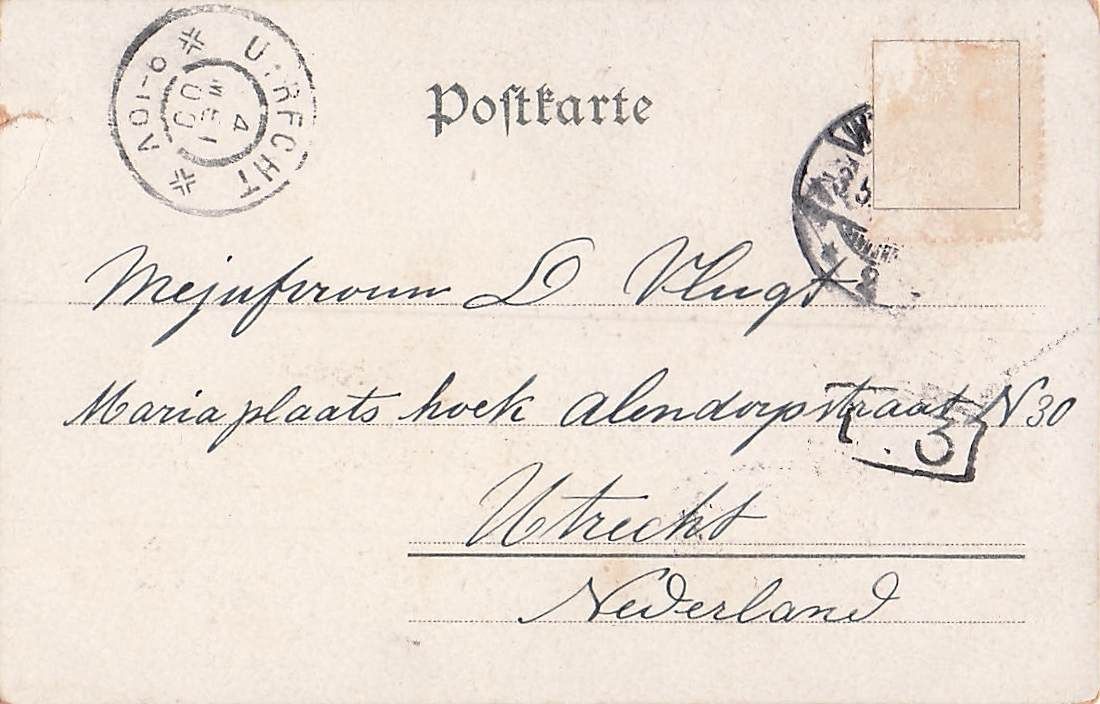 UTRECHT
4
Postkarte
Mejufvrouw L Vlugt
Maria plaats hoek Alendorpstraat N 30
3
Utrecht
Nederland